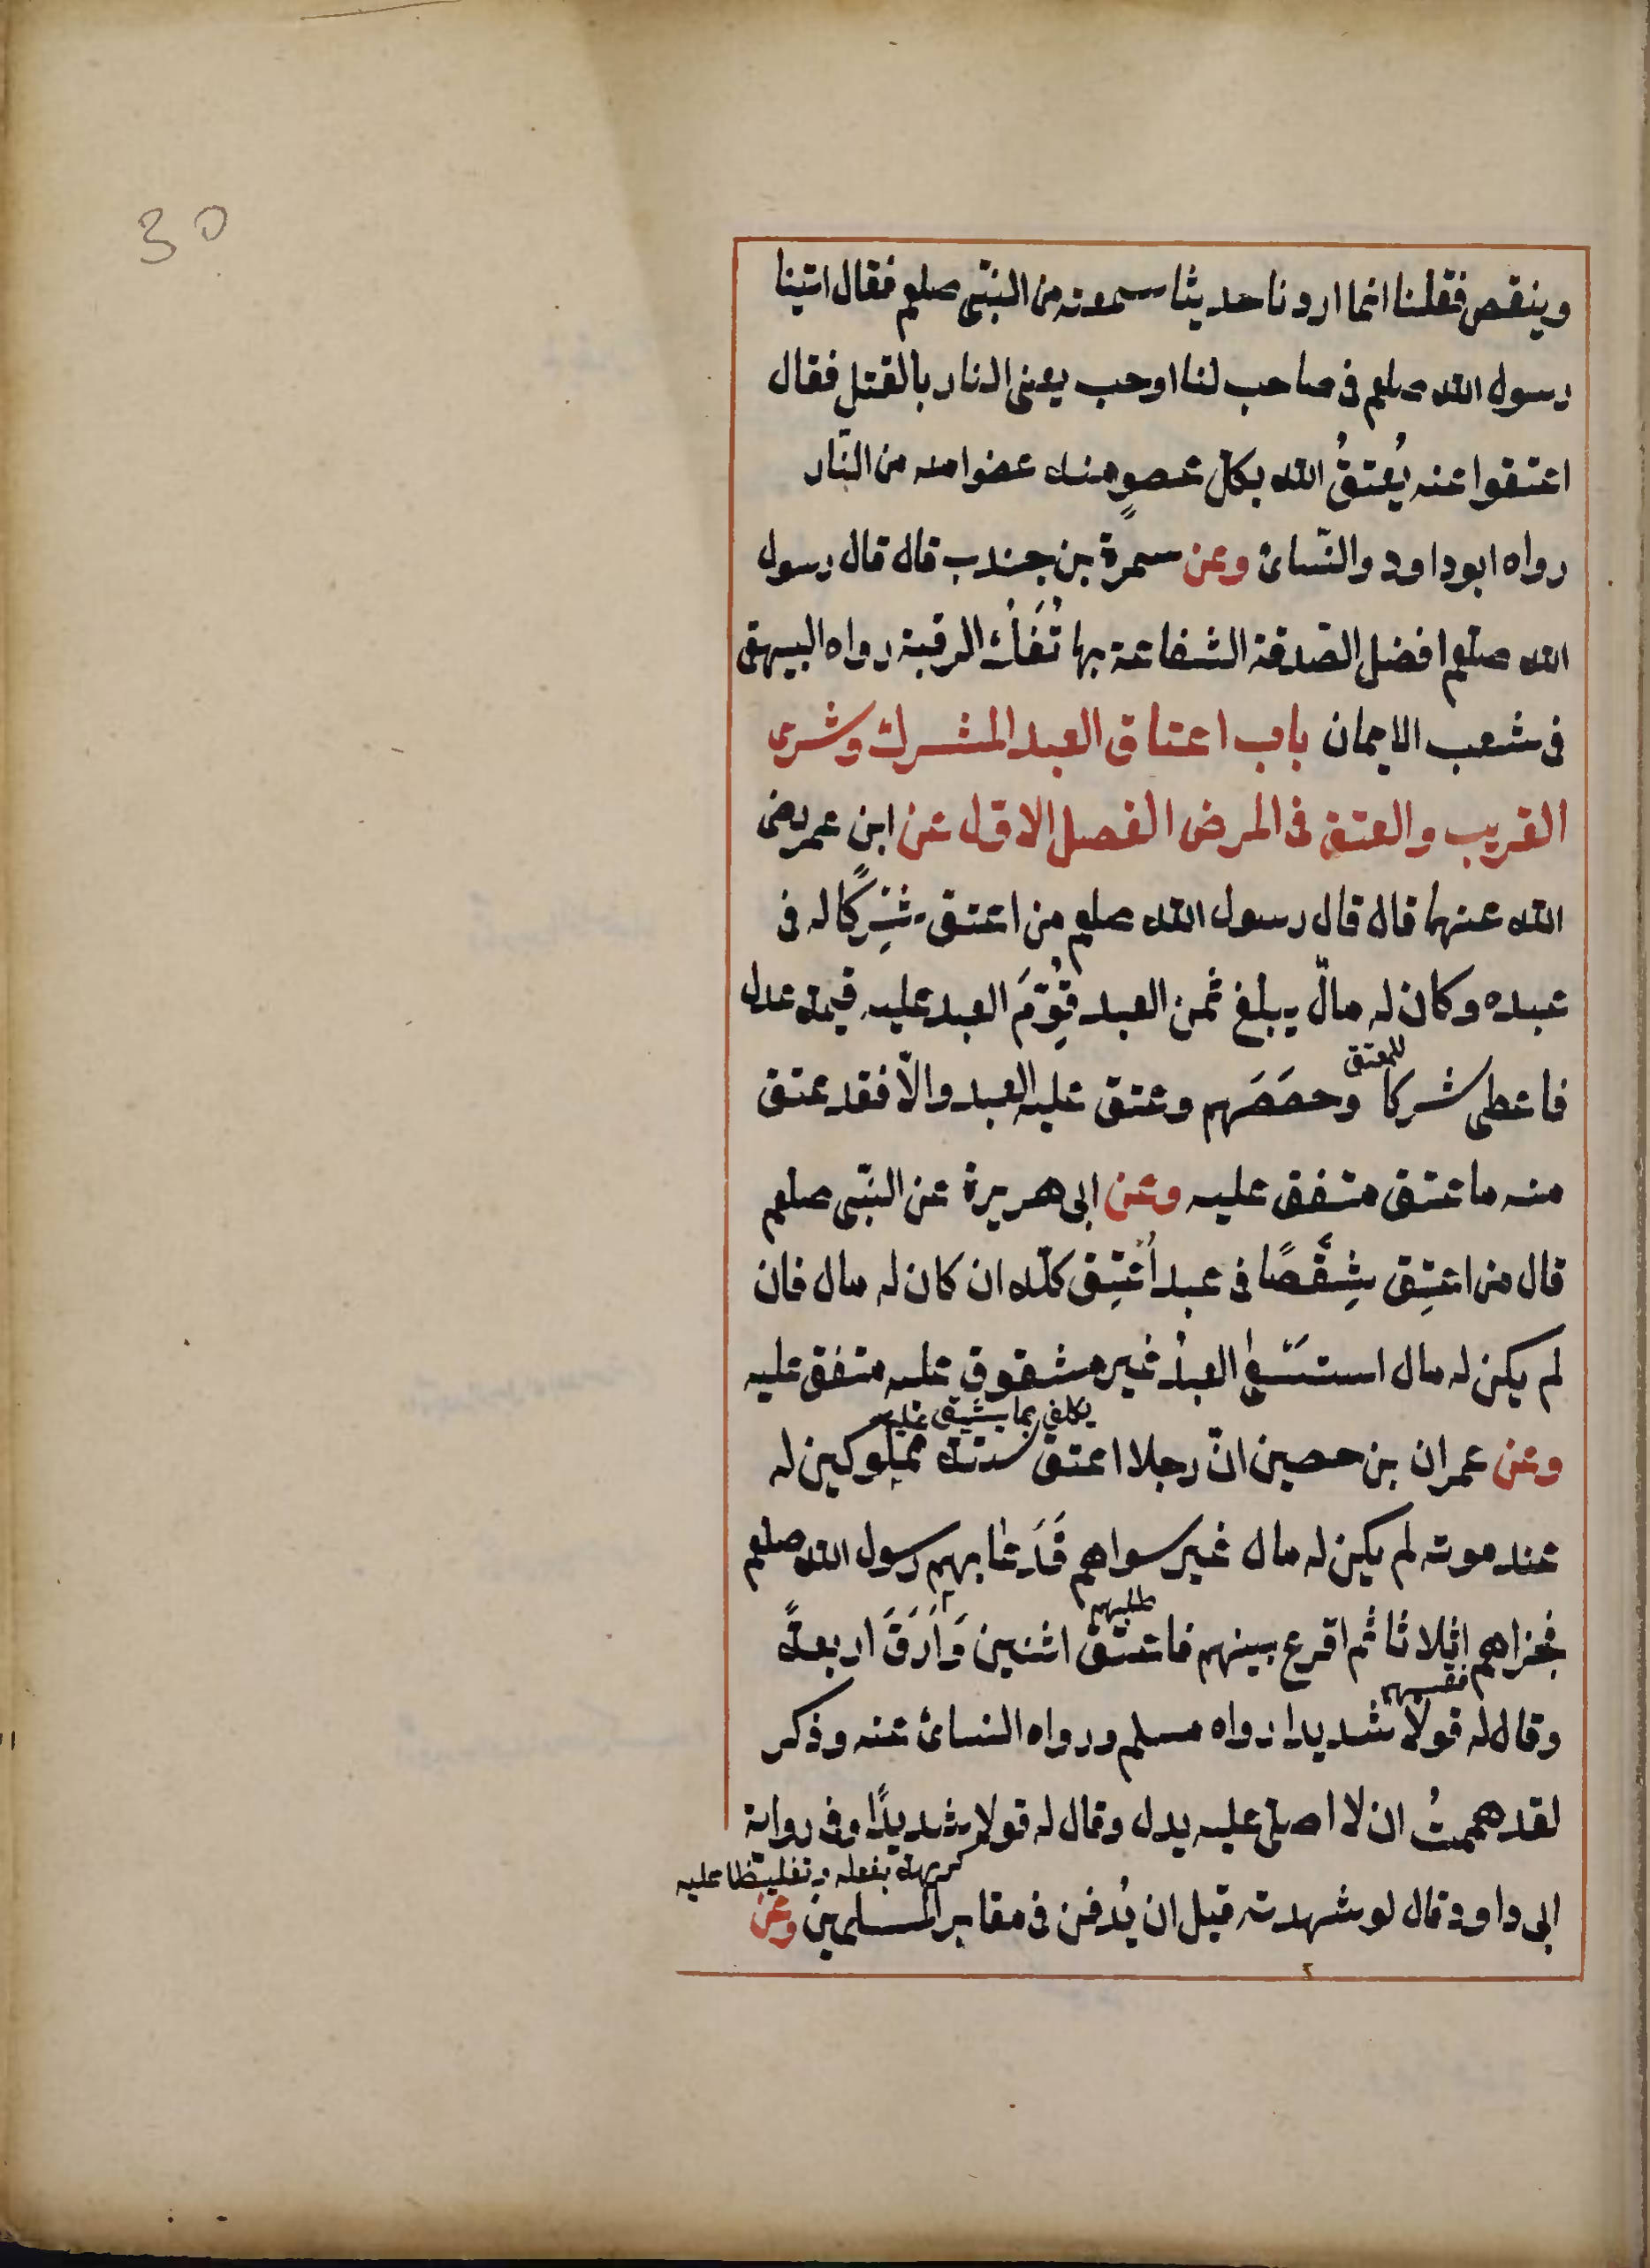 30
وينقص فقلنا انما اردنا حديثا سمعته من النبّى صلعم فقال اتينا
رسول الله صلعم فى صاحب لنا اوجب يعنى النار بالقتل فقال
اعتقوا عنه يُعتقُ الله بكل عضوٍ منه عضوا منه من النّار
رواه ابوداود والنّسائ وعن سمرة بن جندب قال قال رسول
الله صلعم افضل الصّدقة الشفاعة بها تُفَكُ الرقبة رواه البيهقى
فى شعب الايمان باب اعتاق العبد المشرك وشرى
القريب والعتق فى المرض الفصل الاوّل عن ابن عمر رضى
الله عنهما قال قال رسول الله صلعم من اعتق شِركًا له فى
عبده وكان له مالٌ يبلغ ثمن العبد قُوِّمَ العبد عليه قيمة عدل
للمعتق
فاعطى شركا وحصَصَهم وعتق عليه العبد والّا فقد عتق
منه ما عتق متفق عليه وعن ابى هريرة عن النبّى صلعم
قال من اعتِق شِقْصًا فى عبد اُعْتِق كلّه ان كان له مال فان
لم يكن له مال استسعى العبدُ غير مشقوق عليه متفق عليه
يكلف بما يشق عليه
وعن عمران بن حصين انّ رجلا اعتق ستة مملوكين له
عند موته لم يكن له مال غير سواهم فَدَعَا بهم رسول الله صلعم
طلبهم
فجزاهم اثلاثا ثم اقرع بينهم فاعتق اثنين وَاَرَقَ اربعةً
فقسمهم
وقال له قولا شديدا رواه مسلم ورواه النسائ عنه وذكر
لقد هممتُ ان لا اصلى عليه بدل وقال له قولا شديدًا وفى رواية
كريهة بفعله وتغليظا عليه
ابى داود قال لو شهدته قبل ان يُدفن فى مقابر المسلمين وعن